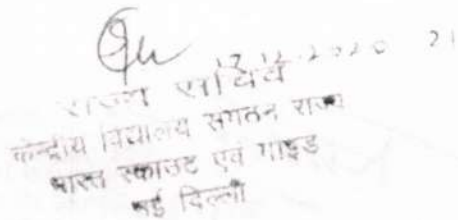 17.12.2020
राज्य सचिव
केन्द्रीय विद्यालय संगठन राज्य
भारत स्काउट एवं गाइड
नई दिल्ली